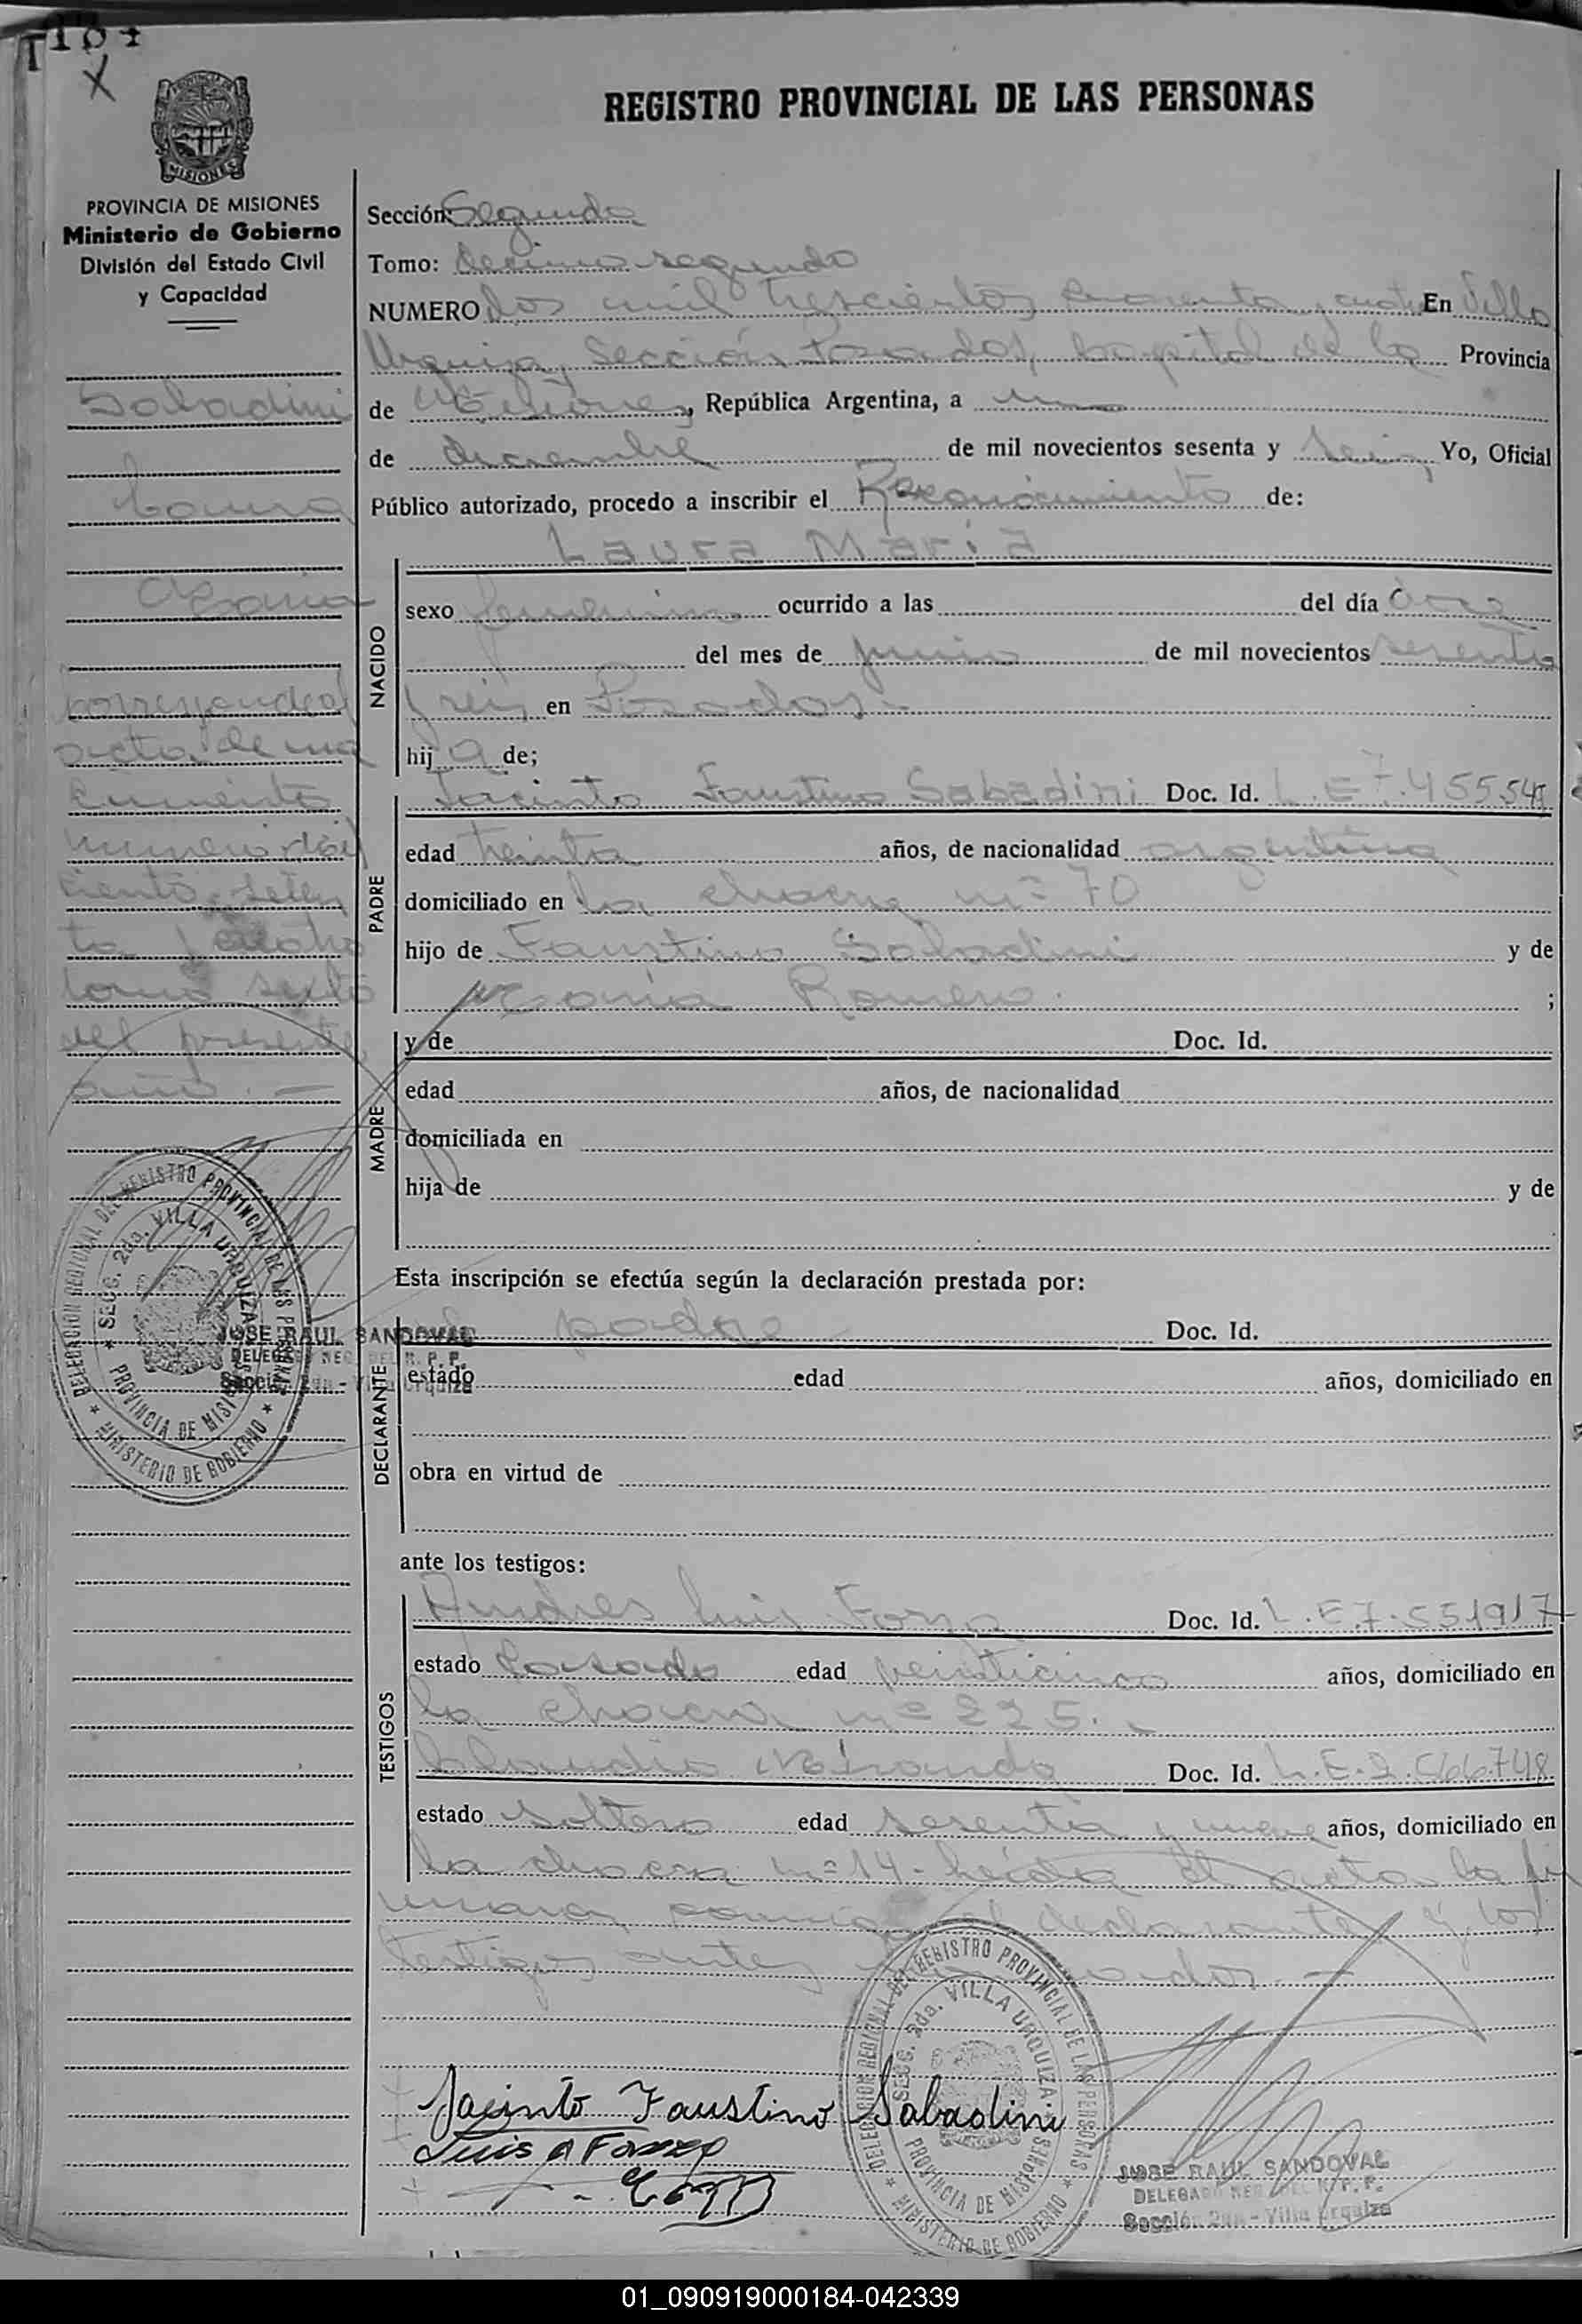 T184
X
MISIONES
PROVINCIA DE MISIONES
Ministerio de Gobierno
División del Estado Civil
y Capacidad
Sabadini
Laura
Maria
corresponde al
acta de na
cimiento
numero mil
ciento seten
ta y cuatro
tomo sexto
del presente
año. —
DELEGACION REGIONAL DEL REGISTRO PROVINCIAL DE LAS PERSONAS
SECC. 2da. VILLA URQUIZA
PROVINCIA DE MISIONES
MINISTERIO DE GOBIERNO
JOSE RAUL SANDOVAL
DELEGADO REG. DEL R. P. P.
Sección 2da - Villa Urquiza
REGISTRO PROVINCIAL DE LAS PERSONAS
Sección: Segunda
Tomo: Decimo segundo
NUMERO dos mil trescientos cuarenta y cuatro En Villa
Urquiza, Sección Posadas, Capital de la Provincia
de Misiones, República Argentina, a uno
de diciembre de mil novecientos sesenta y seis, Yo, Oficial
Público autorizado, procedo a inscribir el Reconocimiento de:
Laura María
NACIDO
sexo femenino ocurrido a las del día once
del mes de junio de mil novecientos sesenta
y seis en Posadas.-
hij a de;
PADRE
Jacinto Faustino Sabadini Doc. Id. L.E 7.455.549
edad treinta años, de nacionalidad argentina
domiciliado en la chacra nº 70
hijo de Faustino Sabadini y de
Maria Romero. ;
MADRE
y de Doc. Id.
edad años, de nacionalidad
domiciliada en
hija de y de
Esta inscripción se efectúa según la declaración prestada por:
DECLARANTE
el padre Doc. Id.
estado edad años, domiciliado en
obra en virtud de
ante los testigos:
TESTIGOS
Andres Luis Doc. Id. L.E.7.551917
estado Casado edad veinticinco años, domiciliado en
la chacra nº 225. -
Claudio Miranda Doc. Id. L.E.2.566.748
estado soltero edad sesenta y nueve años, domiciliado en
la chacra nº 14 - leída el acta la fir
maron conmigo el declarante y los
testigos antes nombrados. —
Jacinto Faustino Sabadini
Luis A
DELEGACION REGIONAL DEL REGISTRO PROVINCIAL DE LAS PERSONAS
SECC. 2da. VILLA URQUIZA
PROVINCIA DE MISIONES
MINISTERIO DE GOBIERNO
JOSE RAUL SANDOVAL
DELEGADO REG. DEL R. P. P.
Sección 2da - Villa Urquiza
01_090919000184-042339